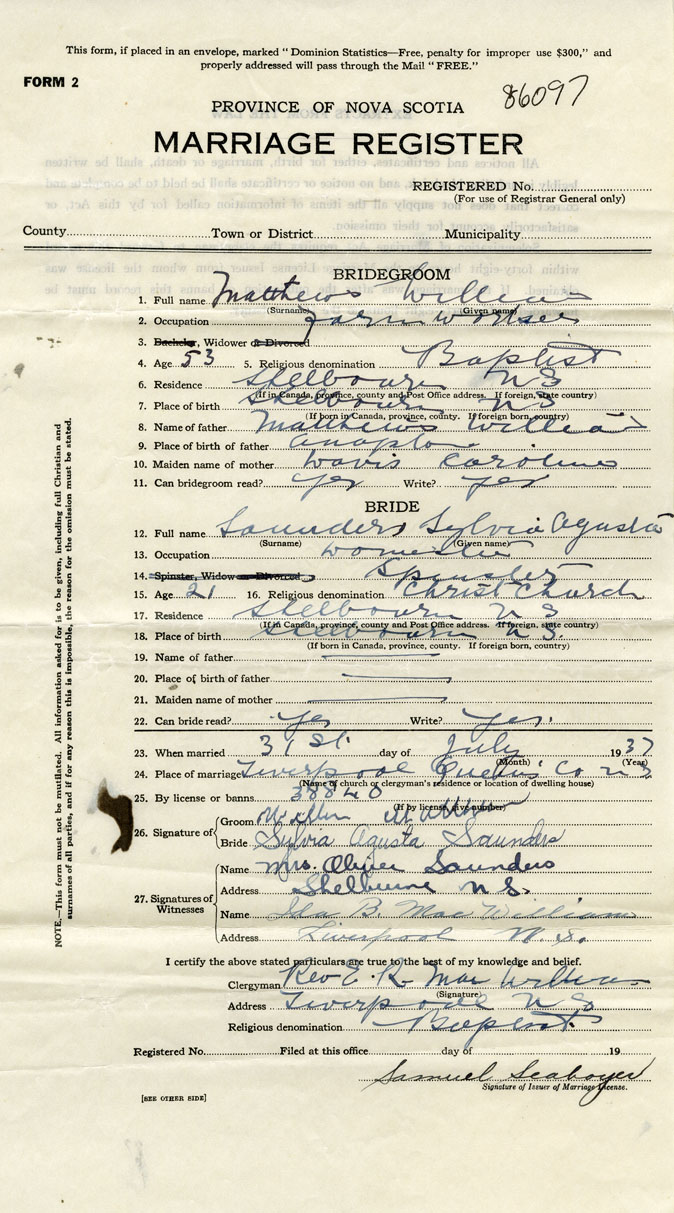 This form, if placed in an envelope, marked "Dominion Statistics—Free, penalty for improper use $300," and
properly addressed will pass through the Mail "FREE."
FORM 2
86097
PROVINCE OF NOVA SCOTIA
MARRIAGE REGISTER
REGISTERED No.
(For use of Registrar General only)
County Town or District Municipality
BRIDEGROOM
1. Full name Matthews William
(Surname) (Given name)
2. Occupation Farm worker
3. Bachelor, Widower or Divorced
4. Age 53 5. Religious denomination Baptist
6. Residence Shelbourn N S
(If in Canada, province, county and Post Office address. If foreign, state country)
7. Place of birth Shelbourn N S
(If born in Canada, province, county. If foreign born, country)
8. Name of father Matthews William
9. Place of birth of father
10. Maiden name of mother Davis Caroline
11. Can bridegroom read? yes Write? yes
BRIDE
12. Full name Saunders Sylvia Agusta
(Surname) (Given name)
13. Occupation Domestic
14. Spinster, Widow or Divorced Spinster
15. Age 21 16. Religious denomination Christ Church
17. Residence Shelbourn N S
(If in Canada, province, county and Post Office address. If foreign, state country)
18. Place of birth Shelbourn N S.
(If born in Canada, province, county. If foreign born, country)
19. Name of father
20. Place of birth of father
21. Maiden name of mother
22. Can bride read? yes Write? yes.
23. When married 31 St. day of July 1937
(Month) (Year)
24. Place of marriage Liverpool Queens Co N S
(Name of church or clergyman's residence or location of dwelling house)
25. By license or banns 38840
(If by license, give number)
26. Signature of Groom
Bride Sylvia Agusta Saunders
27. Signatures of Witnesses
Name Mrs. Saunders
Address Shelburne N. S.
Name Ida B. MacWilliam
Address Liverpool N. S.
I certify the above stated particulars are true to the best of my knowledge and belief.
Clergyman Rev E. R. MacWilliam
(Signature)
Address Liverpool N S
Religious denomination Baptist.
Registered No. Filed at this office day of 19
Samuel Seaboyer
Signature of Issuer of Marriage License.
[SEE OTHER SIDE]
NOTE.—This form must not be mutilated. All information asked for is to be given, including full Christian and
surnames of all parties, and if for any reason this is impossible, the reason for the omission must be stated.